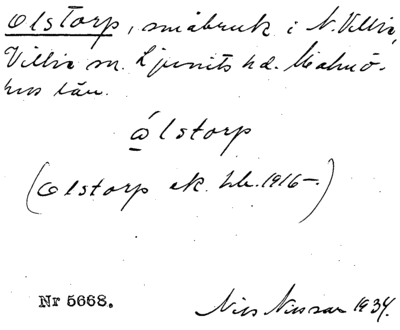 Olstorp, småbruk i N. Villie,
Villie sn. Ljunits hd. Malmö-
hus län.
ólstorp
(Olstorp ek. bl. 1916–.)
Nr 5668.
Nils Nilsson 1934.